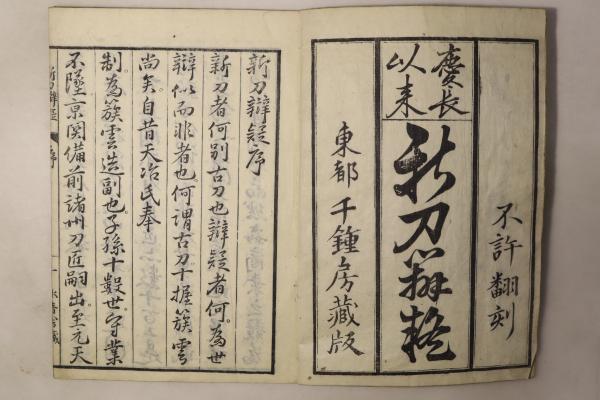 不許翻刻
慶長
以来
新刀辨疑
東都 千鍾房藏版
新刀辯疑序
新刀者何別古刀也辯疑者何。為世
辯似而非者也。何謂古刀。十握簇雲
尚矣。自昔天冶氏奉
制為簇雲造副也。子孫十數世。守業
不墜。京関備前諸州刀匠嗣出。至元天